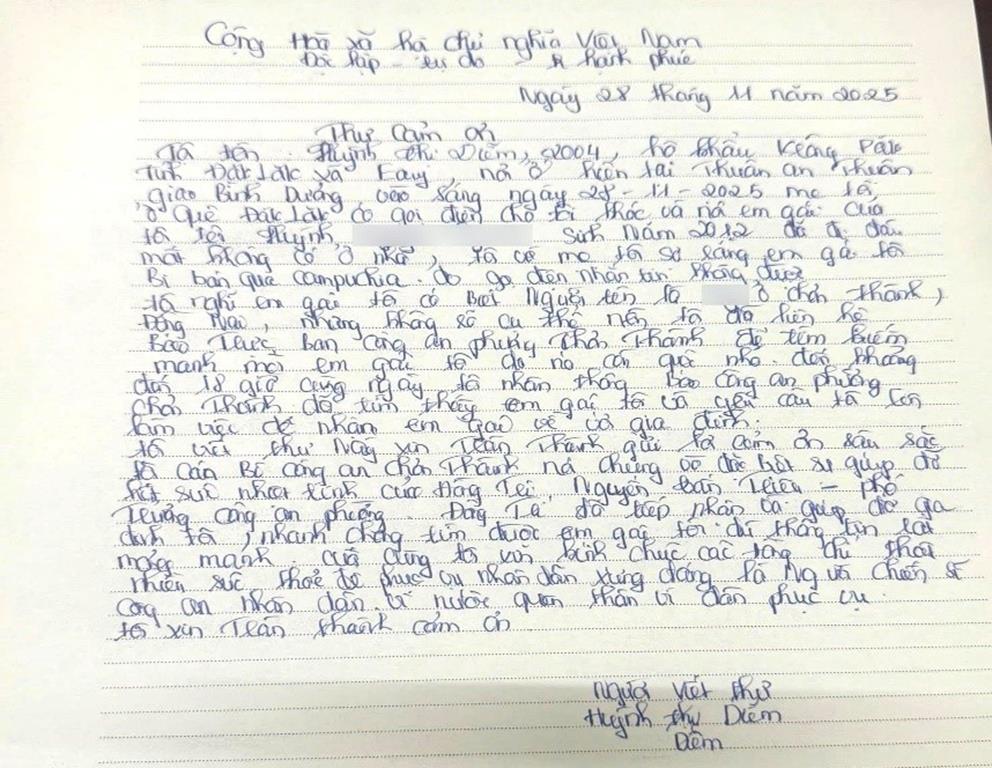 Cộng Hoà xã hà chủ nghĩa Việt Nam
Độc lập - tự do hạnh phúc
Ngày 28 tháng 11 năm 2025
Thư cảm ơn
Tôi tên Huỳnh thị Diễm, 2004, hộ khẩu
Tỉnh Đăk Lăk xã, nơi ở hiện tại Thuân an Thuân
giao Bình Dương vào sáng ngày 28-11-2025 mẹ tôi
ở Quê Đăk Lăk có gọi điện cho tôi khóc và nói em gái của
tôi tên Huỳnh Sinh năm 2012 đã đi đâu
mất không có ở nhà, tôi và mẹ tôi sợ rằng em gái tôi
Bị bán qua campuchia. do gọi điện nhắn tin không được
tôi nghĩ em gái tôi có Bạn Người tên là ở chơn thành,
Đồng Nai, nhưng không rõ cụ thể nên tôi đã liên hệ
Bảo Trực ban công an phường Chơn Thành để tìm kiếm
manh mối em gái tôi do nó còn quá nhỏ. đến khoảng
đến 18 giờ cùng ngày tôi nhận thông báo công an phường
chơn Thành đã tìm thấy em gái tôi và yêu cầu tôi lên
làm việc để nhận em gái về với gia đình.
tôi viết thư Này xin Trân Thành gửi lời cảm ơn sâu sắc
tới Cán Bộ công an chơn Thành nói chung và đặc biệt sự giúp đỡ
hết sức nhiệt tình của Đồng, Nguyễn Văn - phó
Trưởng công an phường. đã tiếp nhận và giúp đỡ gia
đình tôi, nhanh chóng tìm được em gái tôi dù thông tin rất
mỏng manh cuối cùng tôi xin kính chúc các đồng chí thật
nhiều sức khoẻ để phục vụ nhân dân xứng đáng là chiến sĩ
công an nhân dân vì nước quên thân vì dân phục vụ.
tôi xin Trân thành cảm ơn
Người viết thư
Huỳnh thị Diễm
Diễm